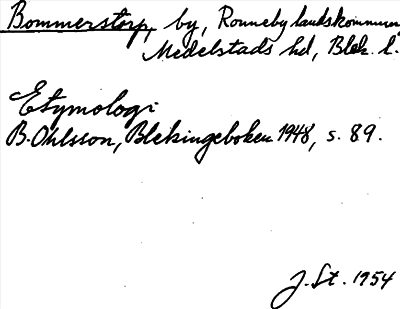 Bommerstorp, by, Ronneby landskommun
Medelstads hd, Blek. l.
Etymologi
B. Ohlsson, Blekingeboken 1948, s. 89.
J. St. 1954